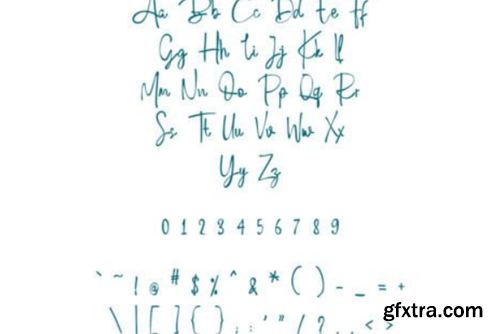 Aa Bb Cc Dd Ee Ff
Gg Hh Ii Jj Kk Ll
Mm Nn Oo Pp Qq Rr
Ss Tt Uu Vv Ww Xx
Yy Zz
0 1 2 3 4 5 6 7 8 9
` ~ ! @ # $ % ^ & * ( ) - _ = +
\ | [ ] { } ; : ' " / ? . , < >
gfxtra.com